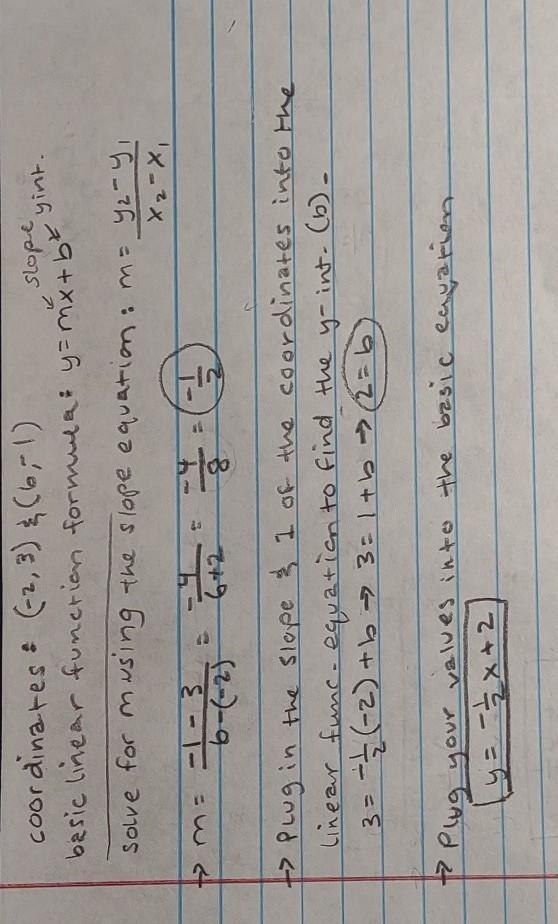 coordinates: (-2,3) & (6,-1)
basic linear function formula: y=mx+b slope yint.
solve for m using the slope equation: m= y₂-y₁ / x₂-x₁
→ m= -1-3 / 6-(-2) = -4 / 6+2 = -4 / 8 = -1/2
→ Plug in the slope & 1 of the coordinates into the
linear func. equation to find the y-int. (b).
3=-1/2(-2)+b → 3=1+b → 2=b
→ Plug your values into the basic equation
y=-1/2x+2